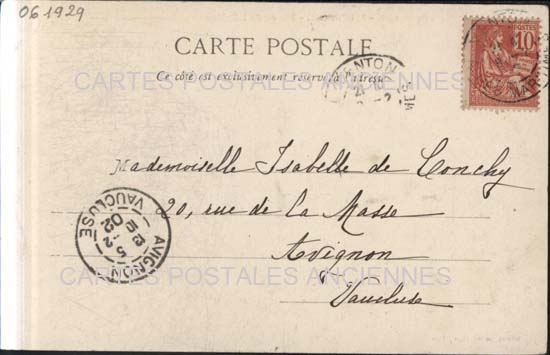 061929
CARTE POSTALE
Ce côté est exclusivement réservé à l'adresse
ANTON
POSTES
10
CARTES POSTALES ANCIENNES
Mademoiselle Isabelle de Conchy
20, rue de La Masse
Avignon
Vaucluse
AVIGNON
VAUCLUSE
5
13 -2
02
CARTES POSTALES ANCIENNES